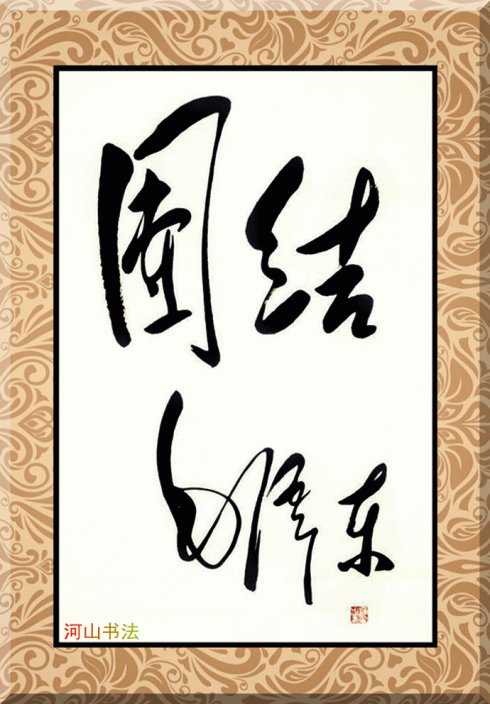 团结
毛泽东
河山书法